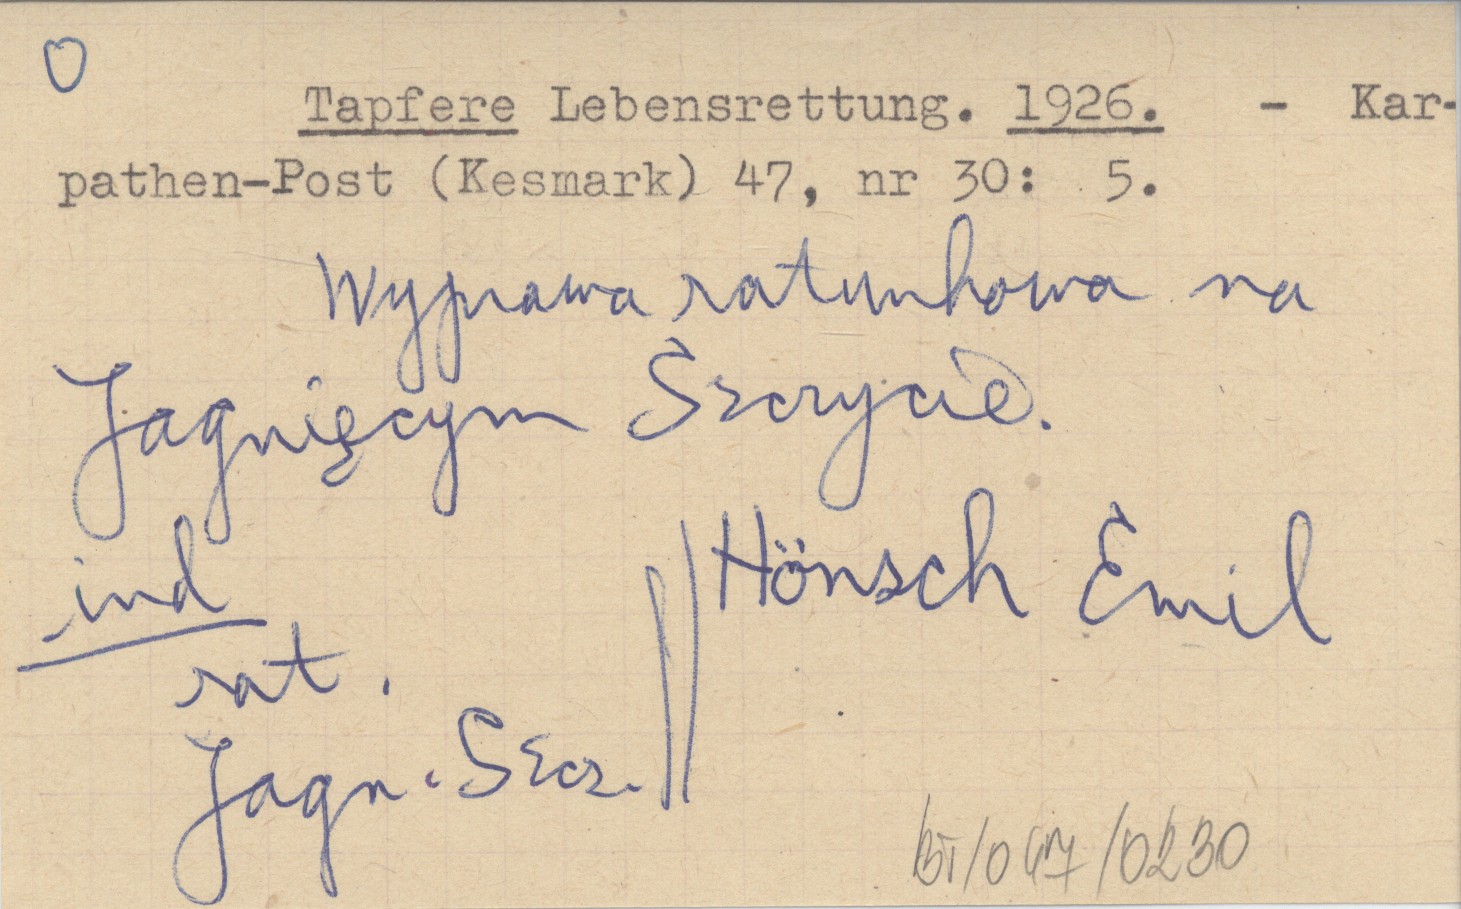 O
Tapfere Lebensrettung. 1926. - Kar-
pathen-Post (Kesmark) 47, nr 30: 5.
Wyprawa ratunkowa na
Jagnięcym Szczycie.
ind
Hönsch Emil
rat.
Jagn. Szcz.
BT/047/0230